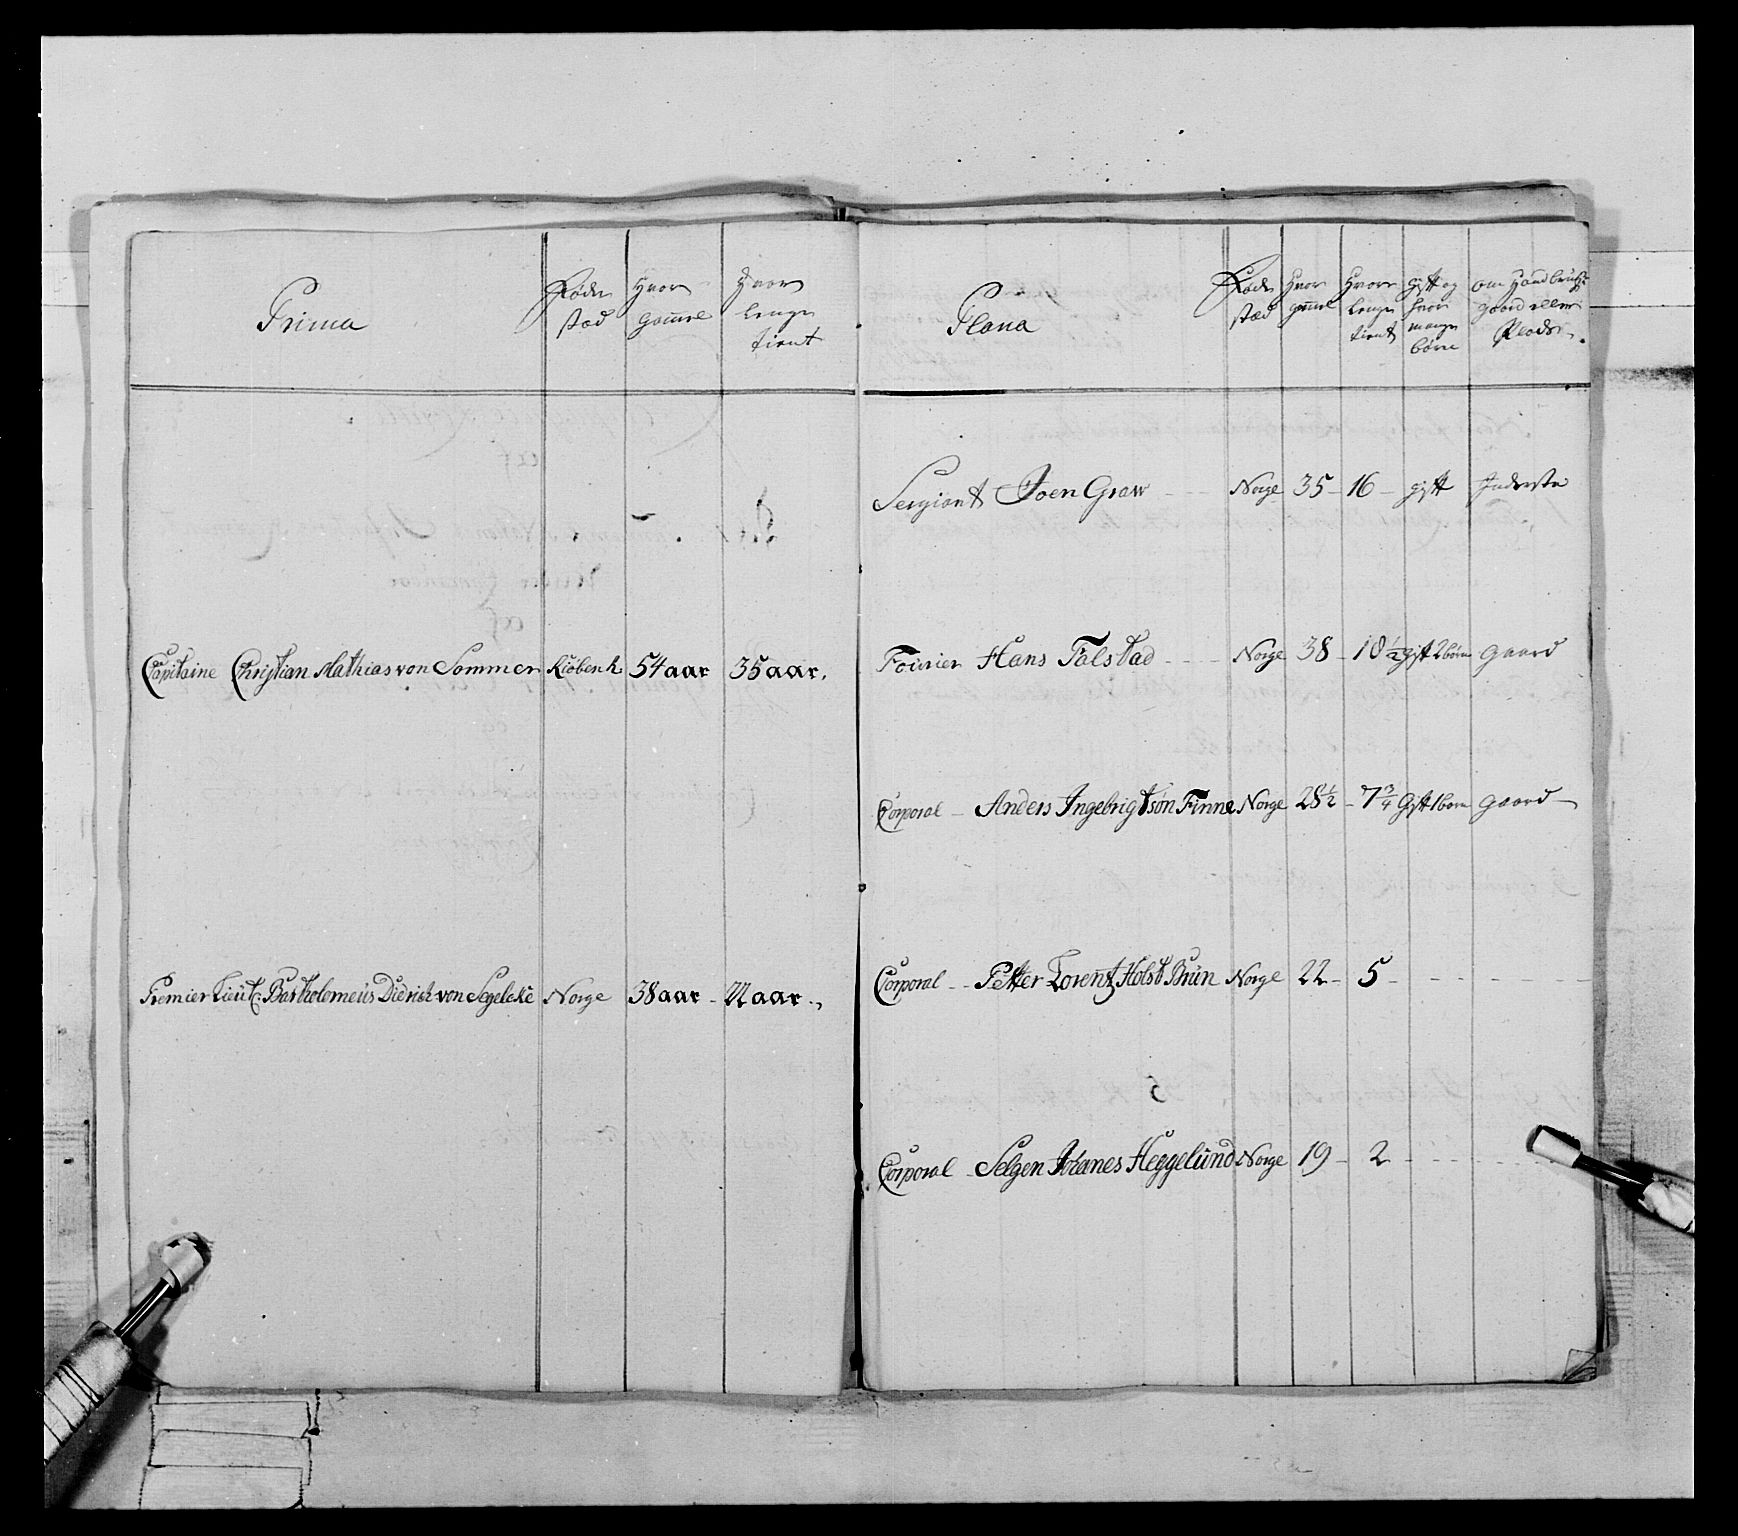 Prima
Føde stæd
Hvor gamel
Hvor lenge tient
Capitaine Christian Mathias von Sommer Kiöbenh 54 aar 35 aar.
Premier Lieut: Bartholemeüs Diderich von Segelcke Norge 38 aar - 22 aar.
Plana
Føde stæd
Hvor gamel
Hvor lenge tient
gift og hvor mange børn
om Hand brüger gaard eller Plads
Sergiant Joen Graw - - Norge 35 - 16 - gift Inderste
Fourier Hans Falstad - - - Norge 38 - 18 1/2 gift 2 börn gaard
Corporal - Anders Ingebrigtsøn Finne Norge 28 1/2 - 7 3/4 gift 1 barn gaard -
Corporal - - Petter Lorentz Holst Brün Norge 22 - 5 - - - -
Corporal - Selgen Johanes Heggelünd Norge 19 - 2 - - - -